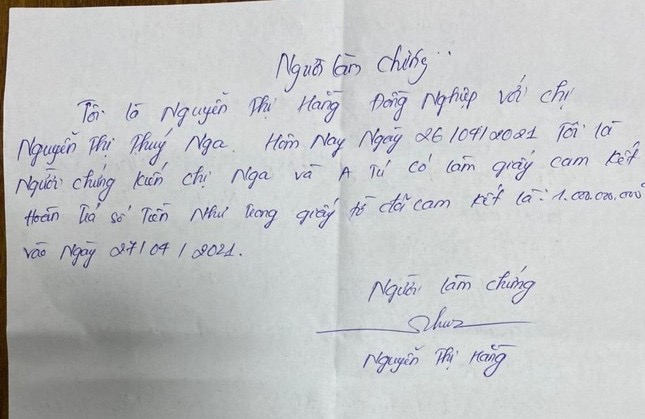 Người làm chứng
Tôi là Nguyễn Thị Hằng Đồng Nghiệp với chị
Nguyễn Thị Thuý Nga. Hôm Nay Ngày 26/04/2021 Tôi là
Người chứng kiến chị Nga và A Tú có làm giấy cam kết
Hoàn trả số tiền Như trong giấy tờ đã cam kết là: 1.000.000.000đ
vào Ngày 27/04/2021.
Người làm chứng
Nguyễn Thị Hằng